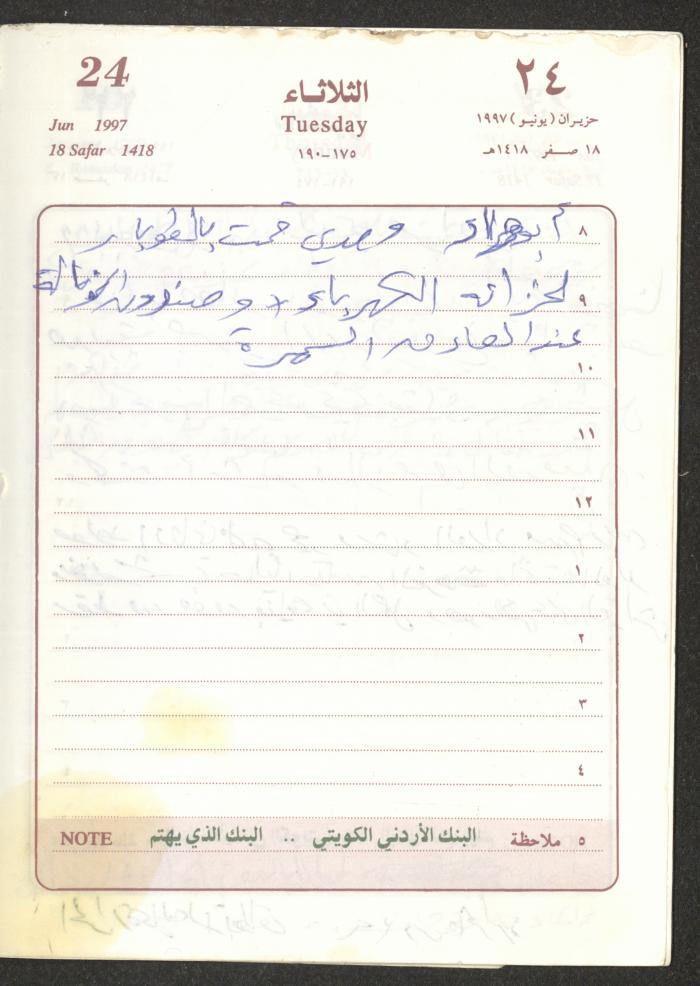 24
الثلاثاء
٢٤
Jun 1997
Tuesday
حزيران (يونيو) ١٩٩٧
18 Safar 1418
١٧٥-١٩٠
١٨ صفر ١٤١٨هـ
٨ أبو جهاد وصدي قمت بالطوبار
٩ لخزانه الكهرباء + وصندوق الزبالة
عند الصادق السمرة
١٠
١١
١٢
١
٢
٣
٤
٥ ملاحظة البنك الأردني الكويتي .. البنك الذي يهتم NOTE